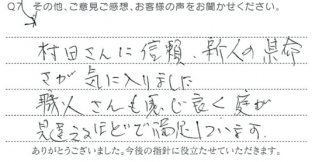 Q7 その他、ご意見ご感想、お客様の声をお聞かせください。
村田さんに信頼、新人の県命
さが気に入りました
職人さんも感じ良く庭が
見違えるほどで満足しています。
ありがとうございました。今後の指針に役立たせていただきます。